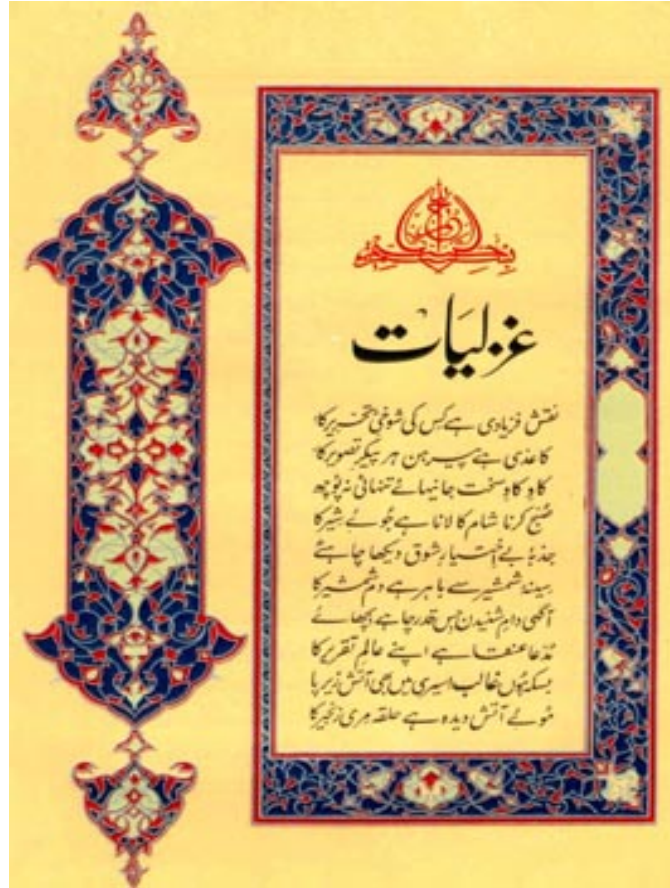 غزلیات
نقش فریادی ہے کس کی شوخیٔ تحریر کا
کاغذی ہے پیرہن ہر پیکرِ تصویر کا
کاوِ کاوِ سخت جانیہائے تنہائی نہ پوچھ
صُبح کرنا شام کا لانا ہے جُوئے شِیر کا
جذبۂ بے اختیارِ شوق دیکھا چاہئے
سینۂ شمشیر سے باہر ہے دم شمشیر کا
آگہی دامِ شنیدن جس قدر چاہے بچھائے
مُدّعا عنقا ہے اپنے عالمِ تقریر کا
بسکہ ہُوں غالب اسیری میں بھی آتش زیرِ پا
مُوئے آتش دیدہ ہے حلقہ مِری زنجیر کا